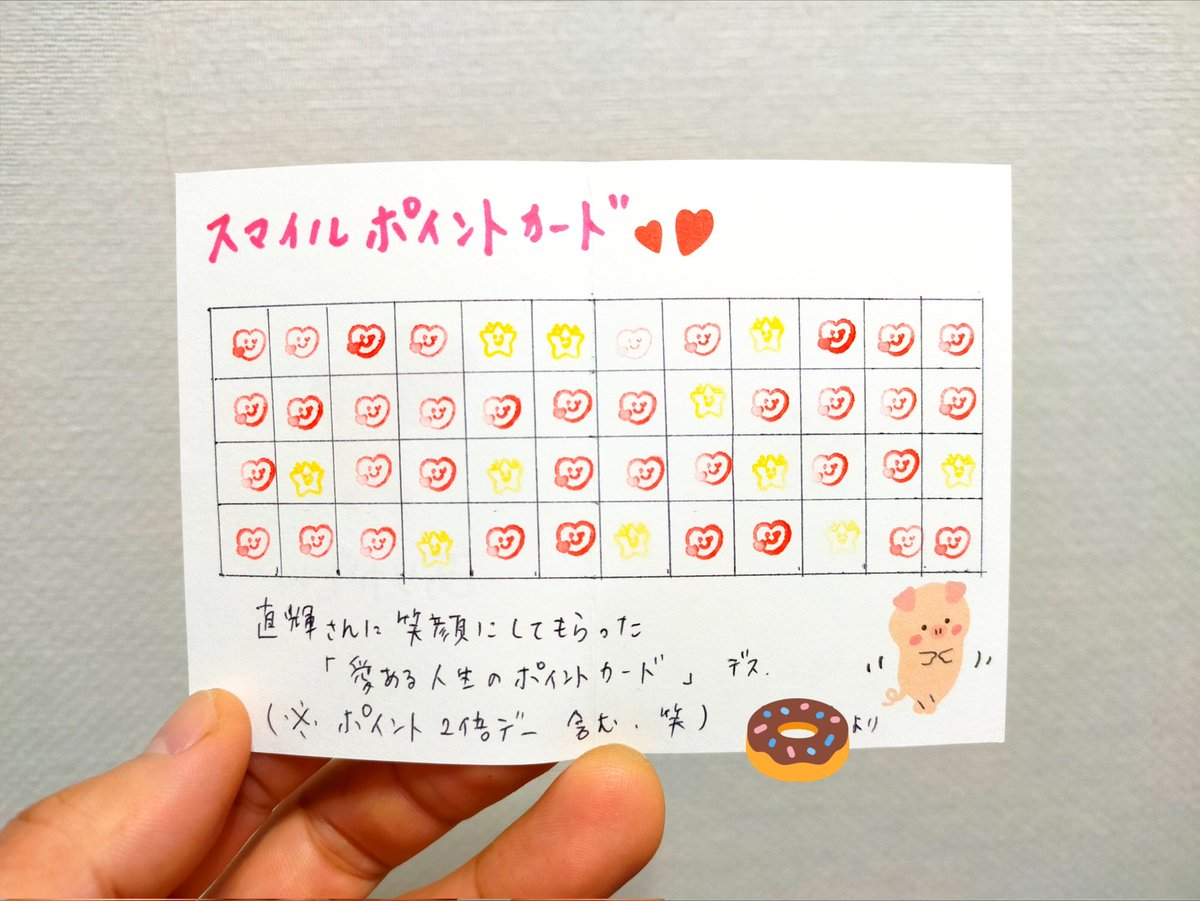 スマイルポイントカード
直輝さんに笑顔にしてもらった
「愛ある人生のポイントカード」デス.
(※ ポイント2倍デー含む.笑)
より